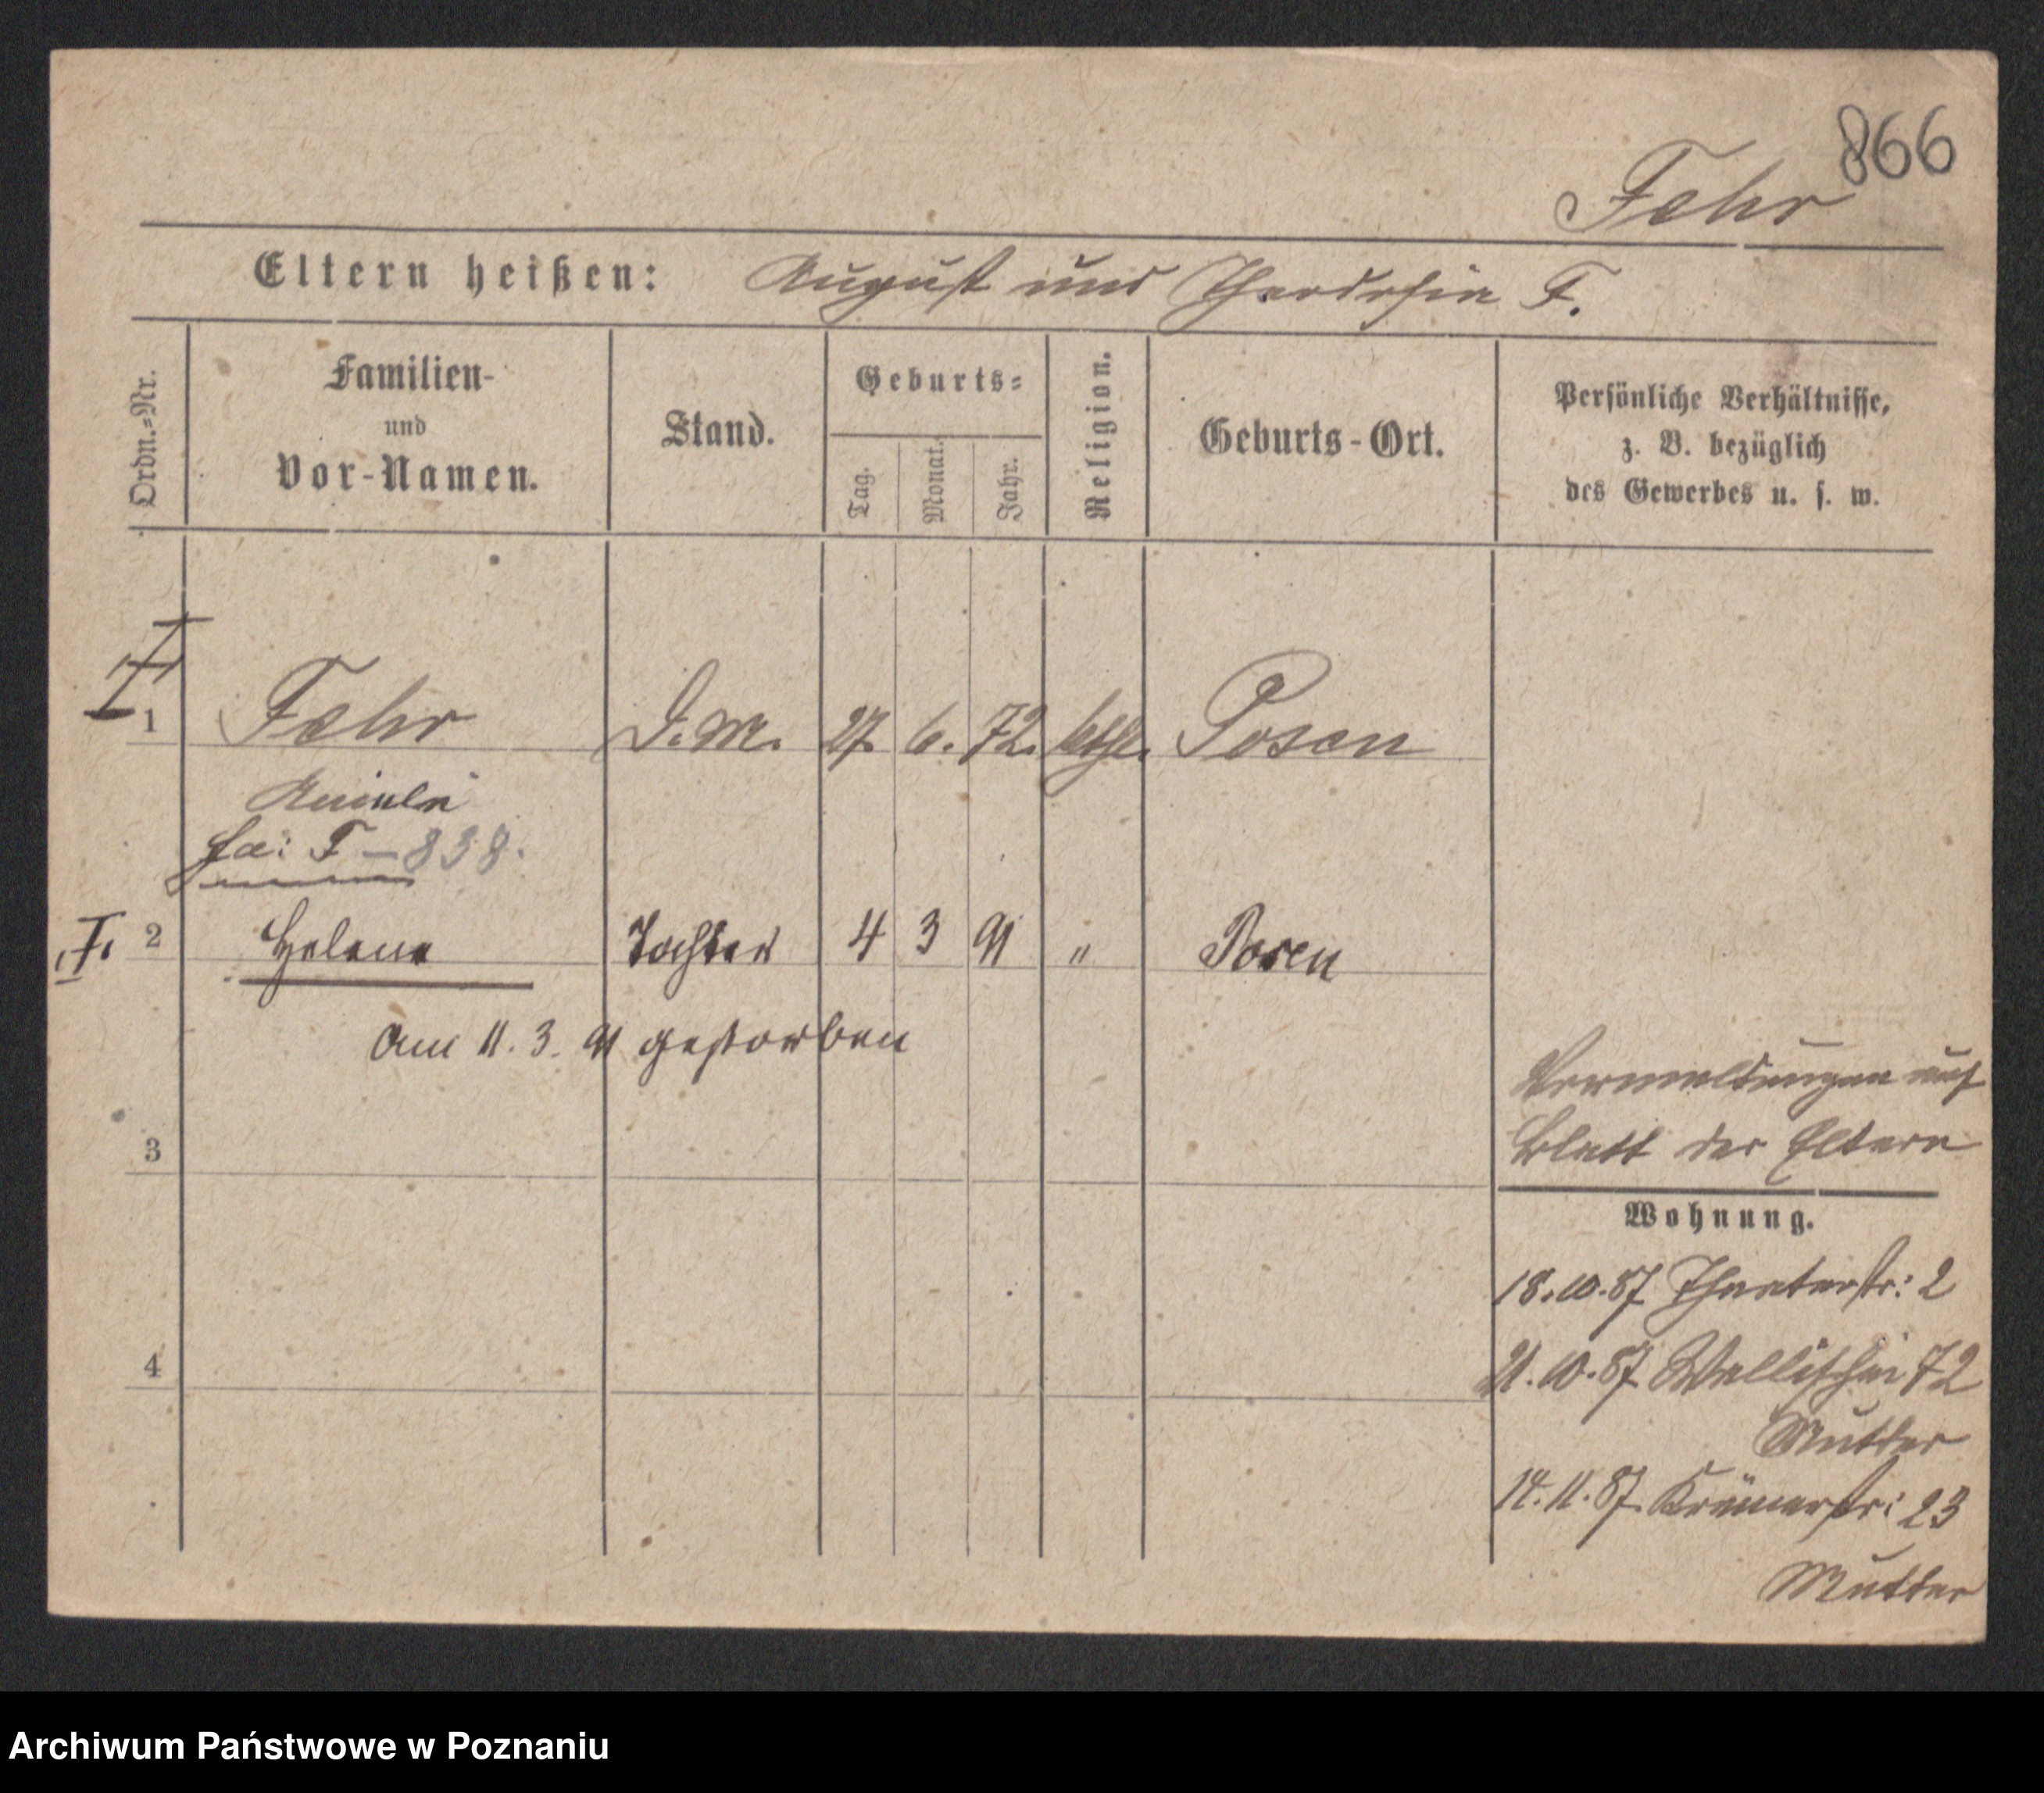 866
Fehr
Eltern heißen: August und Theodosia F.
Ordn.-Nr.
Familien-
und
Vor-Namen.
Stand.
Geburts-
Tag.
Monat.
Jahr.
Religion.
Geburts-Ort.
Persönliche Verhältnisse,
z. B. bezüglich
des Gewerbes u. s. w.
1 Fehr D. M. 27. 6. 72. kth. Posen
fa: F – 838.
2 Helene Tochter 4 3 91 " Posen
am 11. 3. 91 gestorben
auf
Blatt der Eltern
3
Wohnung.
18.10.87 Theaterstr: 2
21.10.87 Wallischei 72
4
Mutter
14.11.87 Krämerstr: 23
Mutter
Archiwum Państwowe w Poznaniu